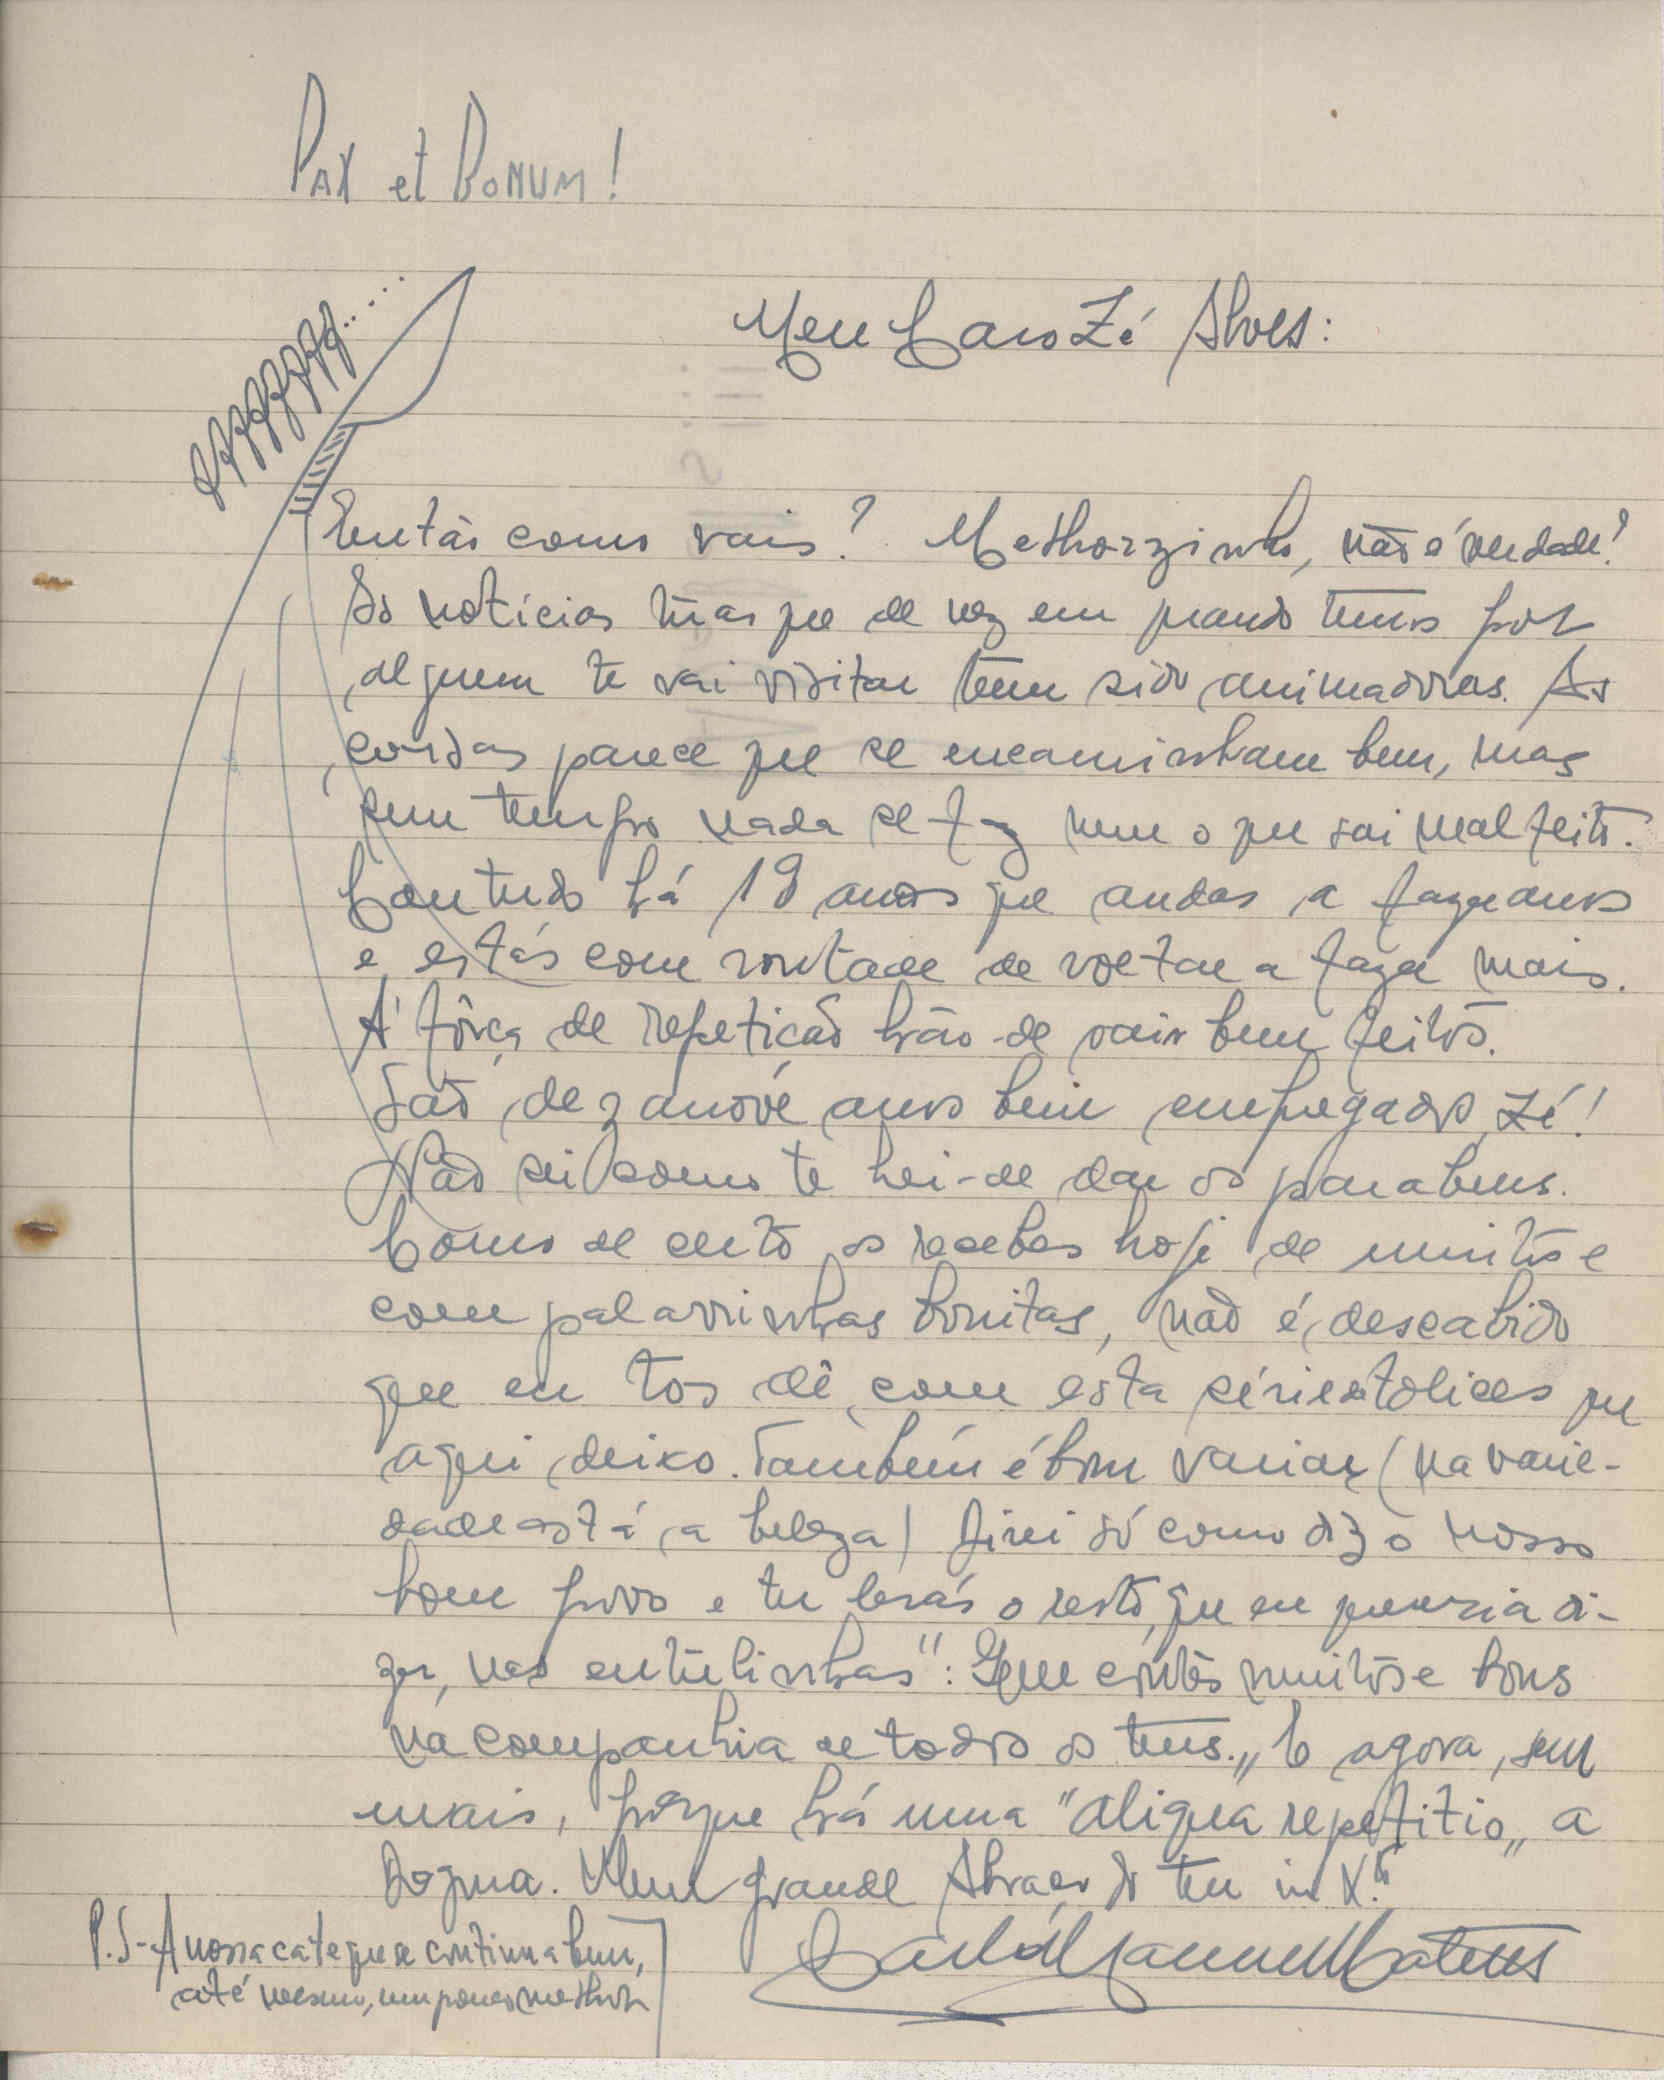 Pax et Bonum!
Meu Caro Zé Alves:
Então como vais? Melhorzinho, não é verdade?
As notícias tuas que de vez em quando temos por
alguem te vai visitar têm sido animadoras. As
coisas parece que se encaminham bem, mas
sem tempo nada se faz nem o que sai mal feito.
Contudo há 19 anos que andas a fazer anos
e estás com vontade de voltar a fazer mais.
Á fôrça de repetição hão-de sair bem feitos.
São dezanove anos bem empregados, Zé!
Não sei como te hei-de dar os parabens.
Como de certo os recebes hoje de muitos e
com palavrinhas bonitas, não é descabido
que eu tos dê com esta série de tolices que
aqui deixo. Também é bom variar (na varie-
dade está a beleza) Direi só como diz o nosso
bom povo e tu lerás o resto, que eu queria di-
zer, nas entrelinhas": Que contes muitos e bons
na companhia de todos os teus.„ E agora, sem
mais, porque há uma "aliqua repetitio„ a
Dogma. Um grande Abraço do teu in X.to
Carlos Manuel Mateus
P.S- A nossa catequese continua bem,
até mesmo, um pouco melhor